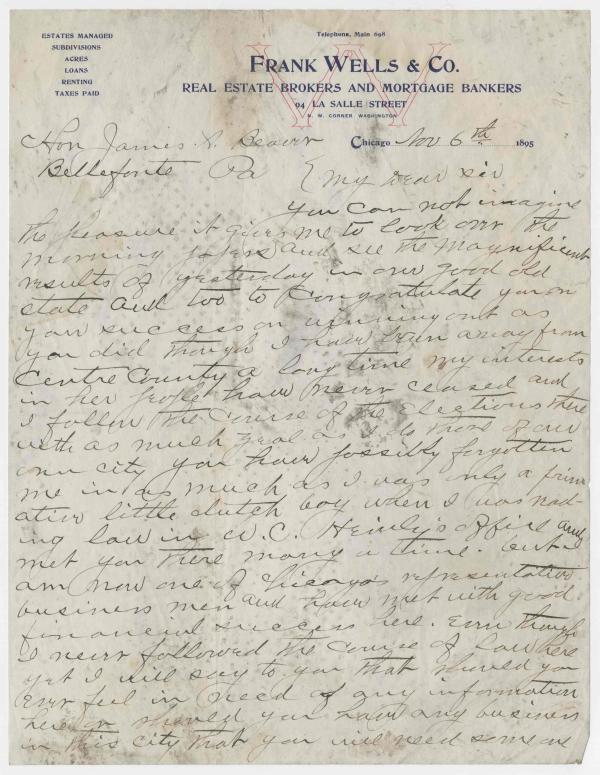 ESTATES MANAGED
SUBDIVISIONS
ACRES
LOANS
RENTING
TAXES PAID
Telephone, Main 698
FRANK WELLS & CO.
REAL ESTATE BROKERS AND MORTGAGE BANKERS
94 LA SALLE STREET
N. W. CORNER WASHINGTON
Chicago Nov 6th 1895
Hon James A. Beaver
Bellefonte Pa
My Dear Sir
You can not imagine
the pleasure it gives me to look over the
morning papers and see the magnificent
results of yesterday in our good old
state and too to congratulate you on
your success on winning out as
you did though I have been away from
Centre County a long time my interests
in her people have never ceased and
I follow the course of the Elections there
with as much zeal as I do those of our
own city you have possibly forgotten
me in as much as I was only a prim
ative little dutch boy when I was read-
ing law in W.C. office and
met you there many a time. but I
am now one of Chicagos representative
business men and have met with good
financial success here. Even though
I never followed the course of law here
yet I will say to you that should you
Ever feel in need of any information
here or should you have any business
in this city that you will need some one